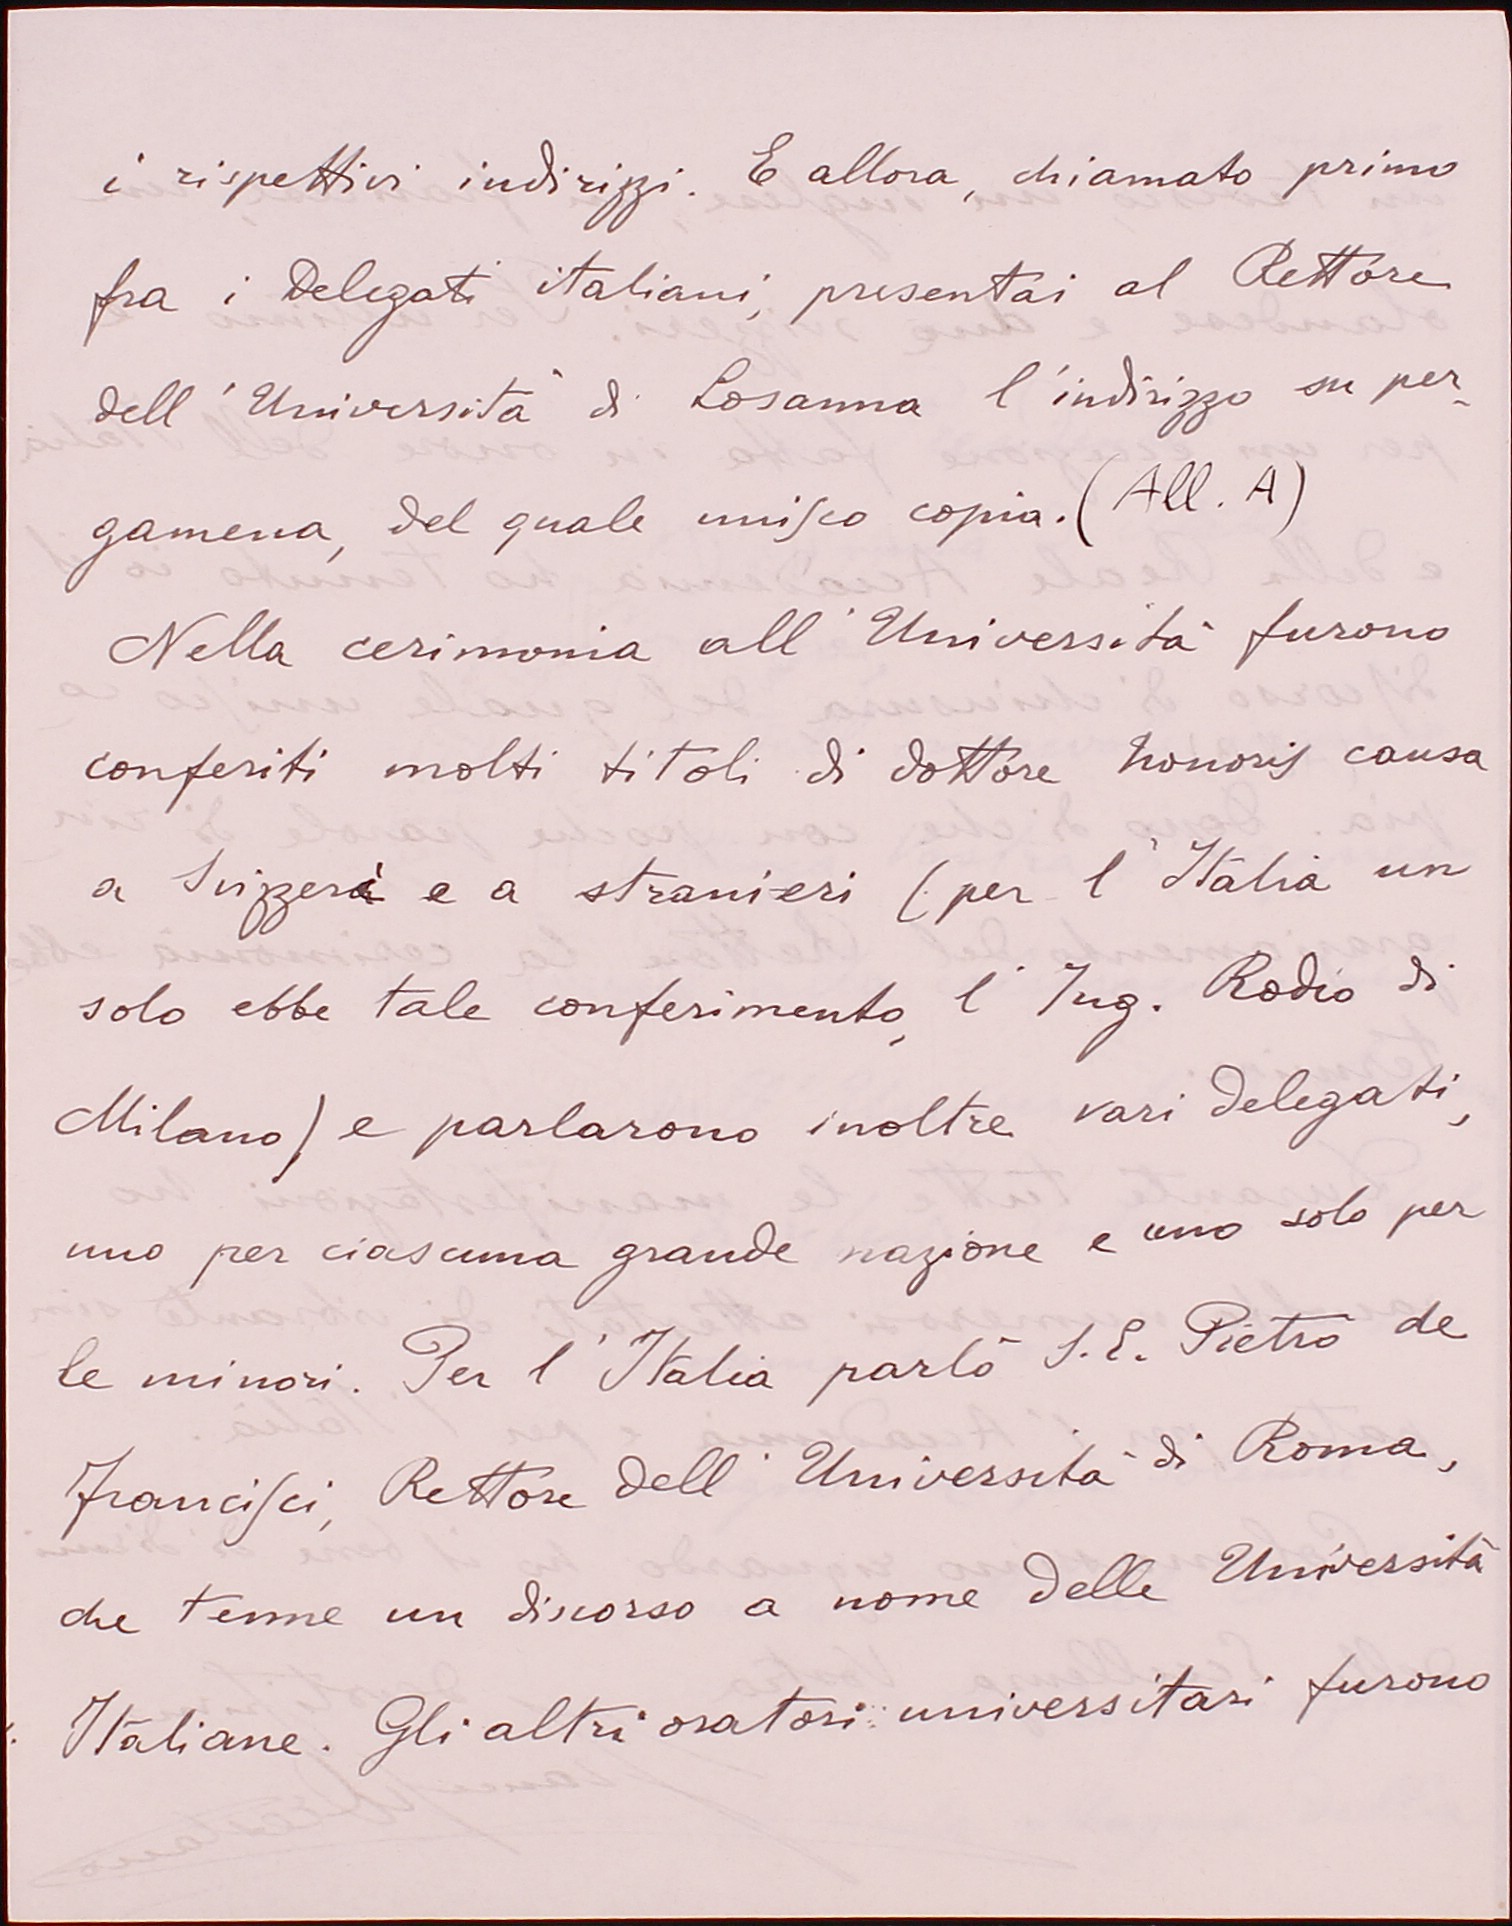 i rispettivi indirizzi. E allora, chiamato primo
fra i Delegati italiani, presentai al Rettore
dell'Università di Losanna l'indirizzo su per-
gamena, del quale unisco copia. (All. A)
Nella cerimonia all'Università furono
conferiti molti titoli di dottore honoris causa
a Svizzeri e a stranieri (per l'Italia un
solo ebbe tale conferimento, l'Ing. Rodio di
Milano) e parlarono inoltre vari delegati,
uno per ciascuna grande nazione e uno solo per
le minori. Per l'Italia parlò S.E. Pietro de
Francisci, Rettore dell'Università di Roma,
che tenne un discorso a nome delle Università
Italiane. Gli altri oratori universitari furono